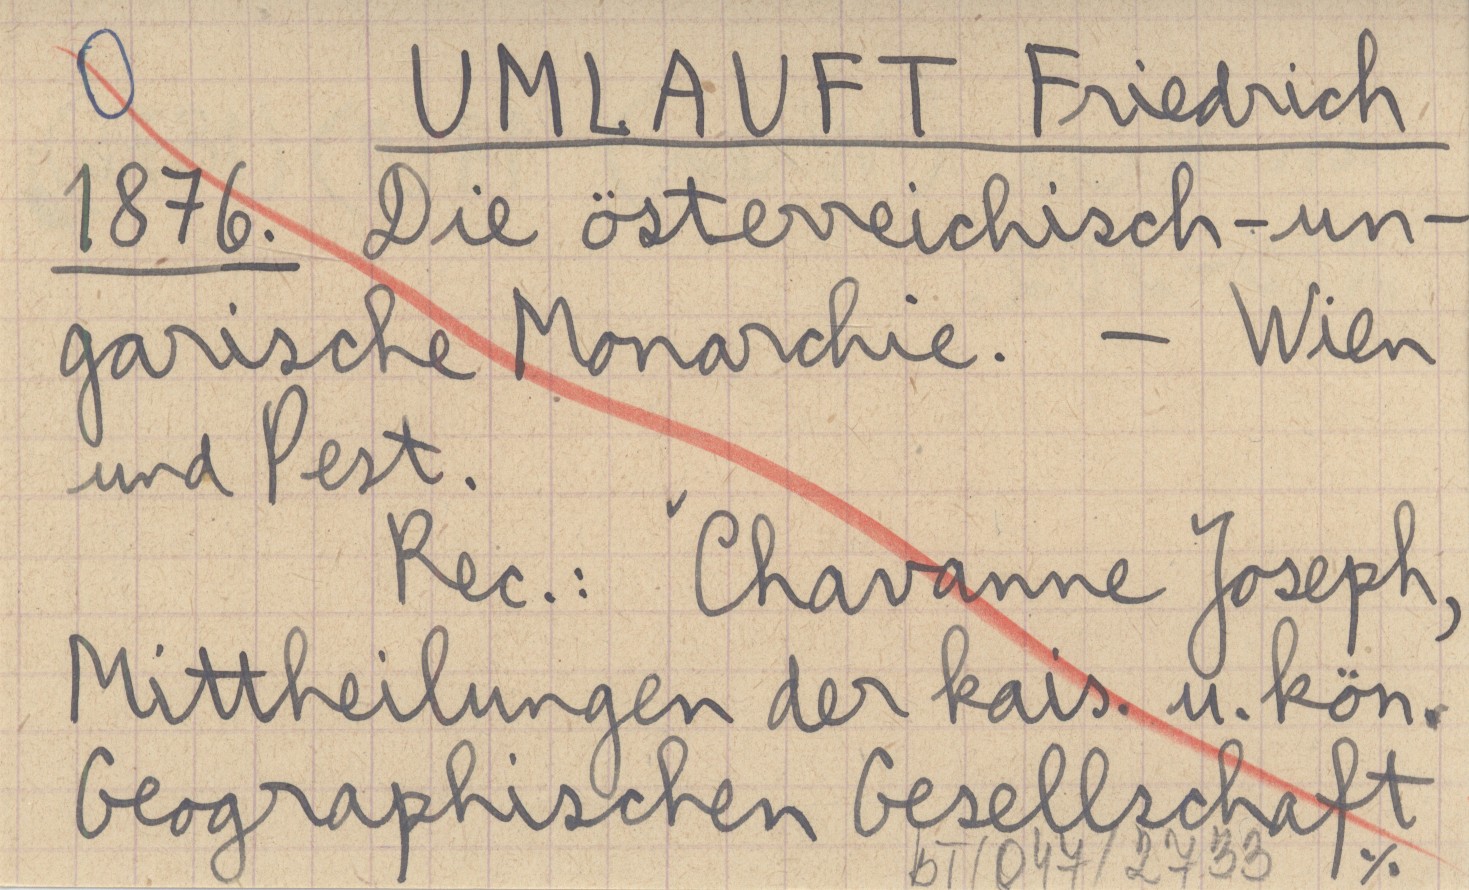 UMLAUFT Friedrich
1876. Die österreichisch-un-
garische Monarchie. – Wien
und Pest.
Rec.: Chavanne Joseph,
Mittheilungen der kais. u. kön.
Geographischen Gesellschaft
bT/047/2733 ·/.